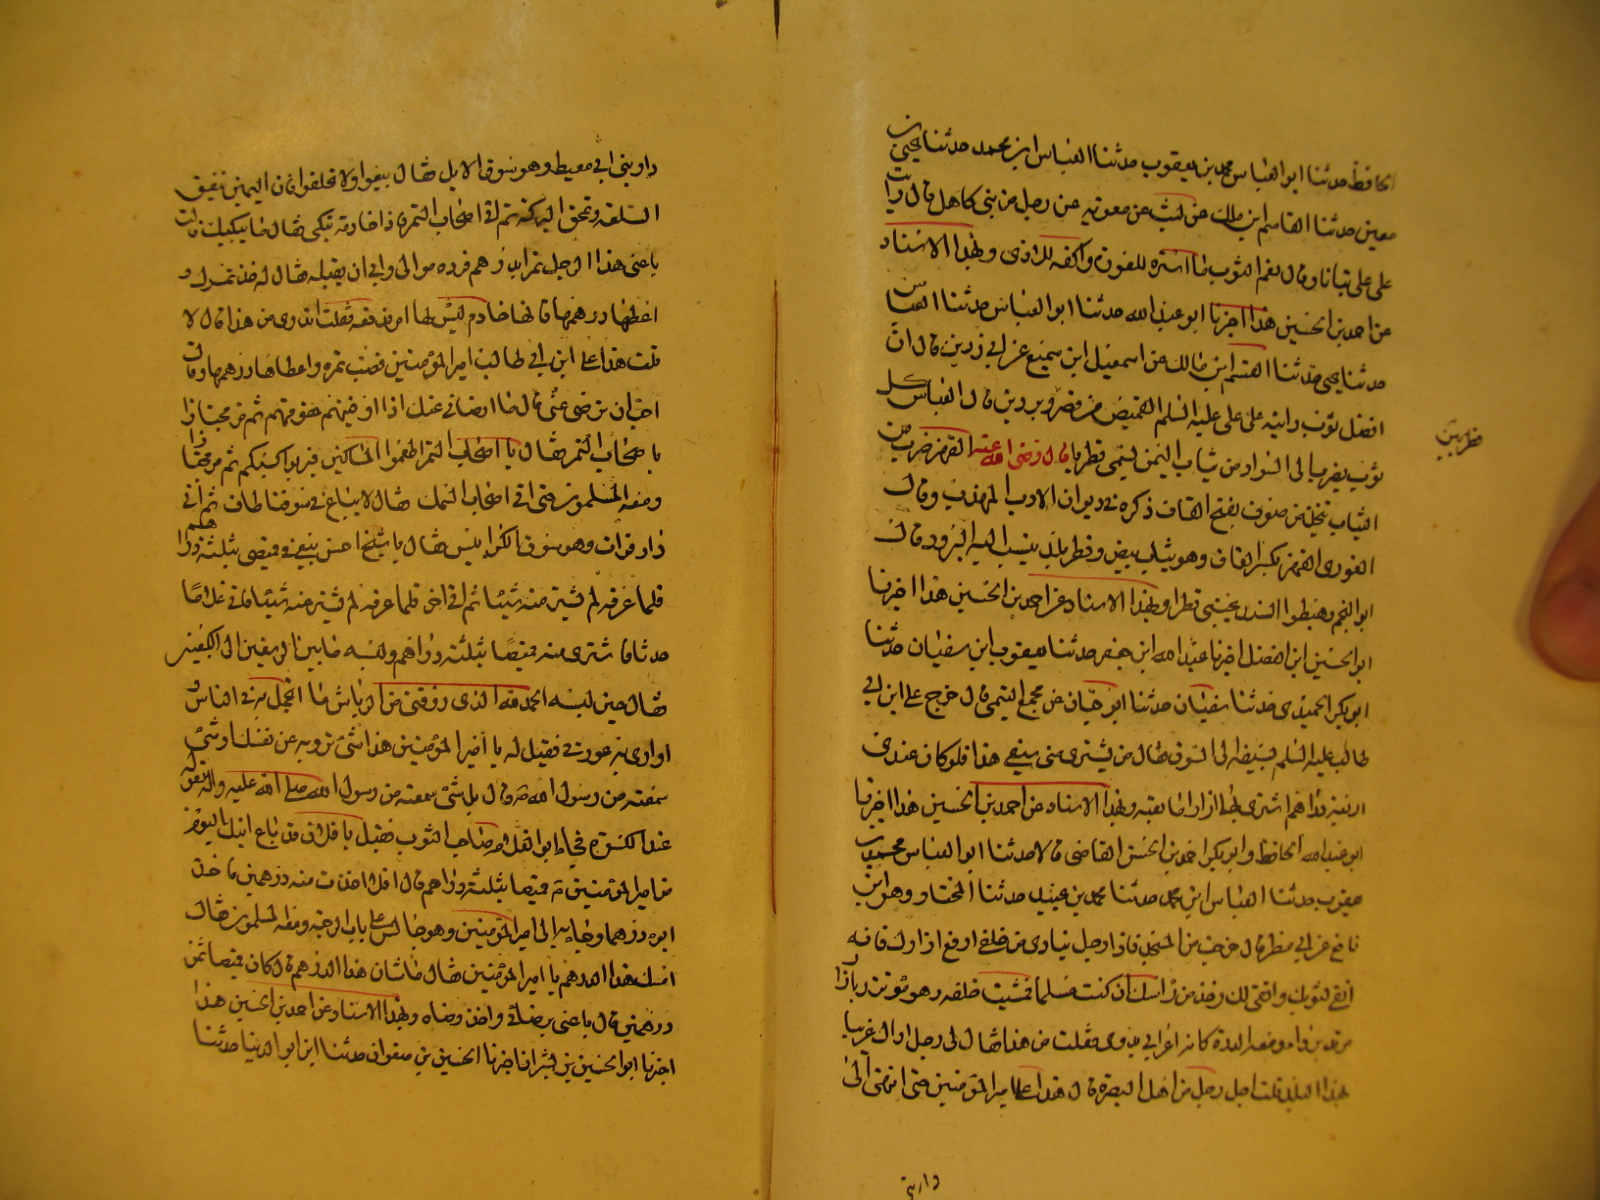 الحافظ حدثنا ابو العباس محمد بن يعقوب حدثنا العباس ابن محمد حدثنا يحيى بن
معين حدثنا القاسم ابن مالك عن ليث عن معوية عن رجل من بني كاهل قال رايت
على علي تبانا وقال نعم الثوب ما استره للعورة واكفه للاذى وبهذا الاسناد
عن احمد بن الحسين هذا اخبرنا ابو عبد الله حدثنا ابو العباس حدثنا العباس
حدثنا يحيى حدثنا القسم ابن مالك عن اسمعيل ابن سميع عن ابي رزين قال ان
افضل ثوب رايته على علي عليه السلم القميص من قهز وبردين قال العباس كل
ثوب يضرب الى السواد من ثياب اليمن يسمى قطريا قال رضي الله عنه القهز ضرب من
قطريتين
الثياب يتخذ من صوف بفتح القاف ذكره في ديوان الادب المهذب وقال
الغوري القهز بكسر القاف وهو ثياب بيض وقطر بلد ينسب اليه البرود قال
ابو النجم وهبطوا السند بجنبي قطرا وبهذا الاسناد عن احمد بن الحسين هذا اخبرنا
ابو الحسين ابن الفضل اخبرنا عبد الله ابن جعفر حدثنا يعقوب ابن سفيان حدثنا
ابو بكر الحميدي حدثنا سفيان حدثنا ابو حيان عن مجمع التيمي قال خرج علي ابن ابي
طالب عليه السلم بسيفه الى السوق فقال من يشتري مني سيفي هذا فلو كان عندي
اربعة دراهم اشتري بها ازارا ما بعته وبهذا الاسناد عن احمد بن الحسين هذا اخبرنا
ابو عبد الله الحافظ وابو بكر احمد بن الحسن القاضي قالا حدثنا ابو العباس محمد بن
يعقوب حدثنا العباس ابن محمد حدثنا محمد بن عبيد حدثنا المختار وهو ابن
نافع عن ابي مطر قال خرجت من المسجد فاذا رجل ينادي من خلفي ارفع ازارك فانه
انقى لثوبك واتقى لك وخذ من راسك ان كنت مسلما فمشيت خلفه وهو متوتزر بازار
مرتد برداء ومعه الدرة كانه اعرابي بدوي فقلت من هذا فقال لي رجل اراك غريبا
بهذا البلد قلت اجل رجل من اهل البصرة قال هذا علي امير المؤمنين حتى انتهى الى
دار بني
دار بني ابي معيط وهو سوق الابل فقال بيعوا ولا تحلفوا فان اليمين تنفق
السلعة وتمحق البركة ثم اتى اصحاب التمر فاذا خادمة تبكي فقال ما يبكيك قالت
باعني هذا الرجل تمرا بدرهم فرده موالي وابى ان يقبله فقال له خذ تمرك و
اعطها درهمها فانها خادم ليس لها امر فدفعه فقلت اتدري من هذا قال لا
قلت هذا علي ابن ابي طالب امير المؤمنين فصب تمره واعطاها درهمها وقال
احب ان ترضى عني قال ما ارضاني عنك اذا اوفيتهم حقوقهم ثم مر مجتازا
باصحاب التمر فقال يا اصحاب التمر اطعموا المساكين فيربو كسبكم ثم مر مجتازا
ومعه المسلمون حتى اتى اصحاب السمك فقال لا يباع في سوقنا طاف ثم اتى
دار فرات وهو سوق الكرابيس فقال يا شيخ احسن بيعي في قميصي بثلثة دراهم
فلما عرفه لم يشتر منه شيئا ثم اتى اخر فلما عرفه لم يشتر منه شيئا فاتى غلاما
حدثا فاشترى منه قميصا بثلثة دراهم ولبسه ما بين الرسغين الى الكعبين
فقال حين لبسه الحمد لله الذي رزقني من الرياش ما اتجمل به في الناس و
اواري به عورتي فقيل له يا امير المؤمنين هذا شئ ترويه عن نفسك او شئ
سمعته من رسول الله قال بل شئ سمعته من رسول الله صلى الله عليه واله يقوله
عند الكسوة فجاء ابو الغلام صاحب الثوب فقيل يا فلان قد باع ابنك اليوم
من امير المؤمنين قميصا بثلثة دراهم قال افلا اخذت منه درهمين فاخذ
ابوه درهما وجاء به الى امير المؤمنين وهو جالس على باب الرحبة ومعه المسلمون فقال
امسك هذا الدرهم يا امير المؤمنين فقال ما شان هذا الدرهم قال كان قميصا ثمن
درهمين قال باعني برضائي واخذ رضاه وبهذا الاسناد عن احمد بن الحسين هذا
اخبرنا ابو الحسين بن بشران اخبرنا الحسين بن صفوان حدثنا ابن ابو الدنيا حدثنا